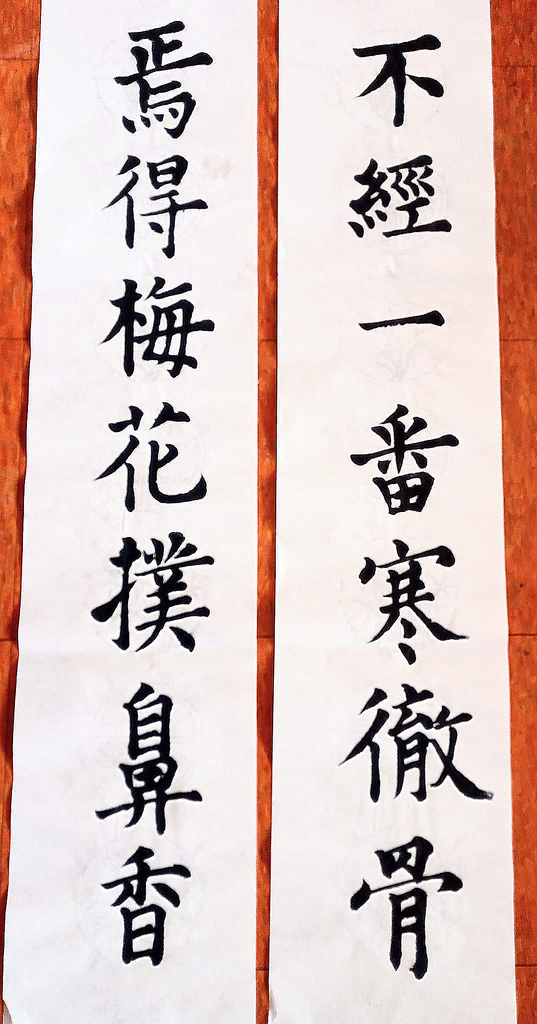 不經一番寒徹骨
焉得梅花撲鼻香